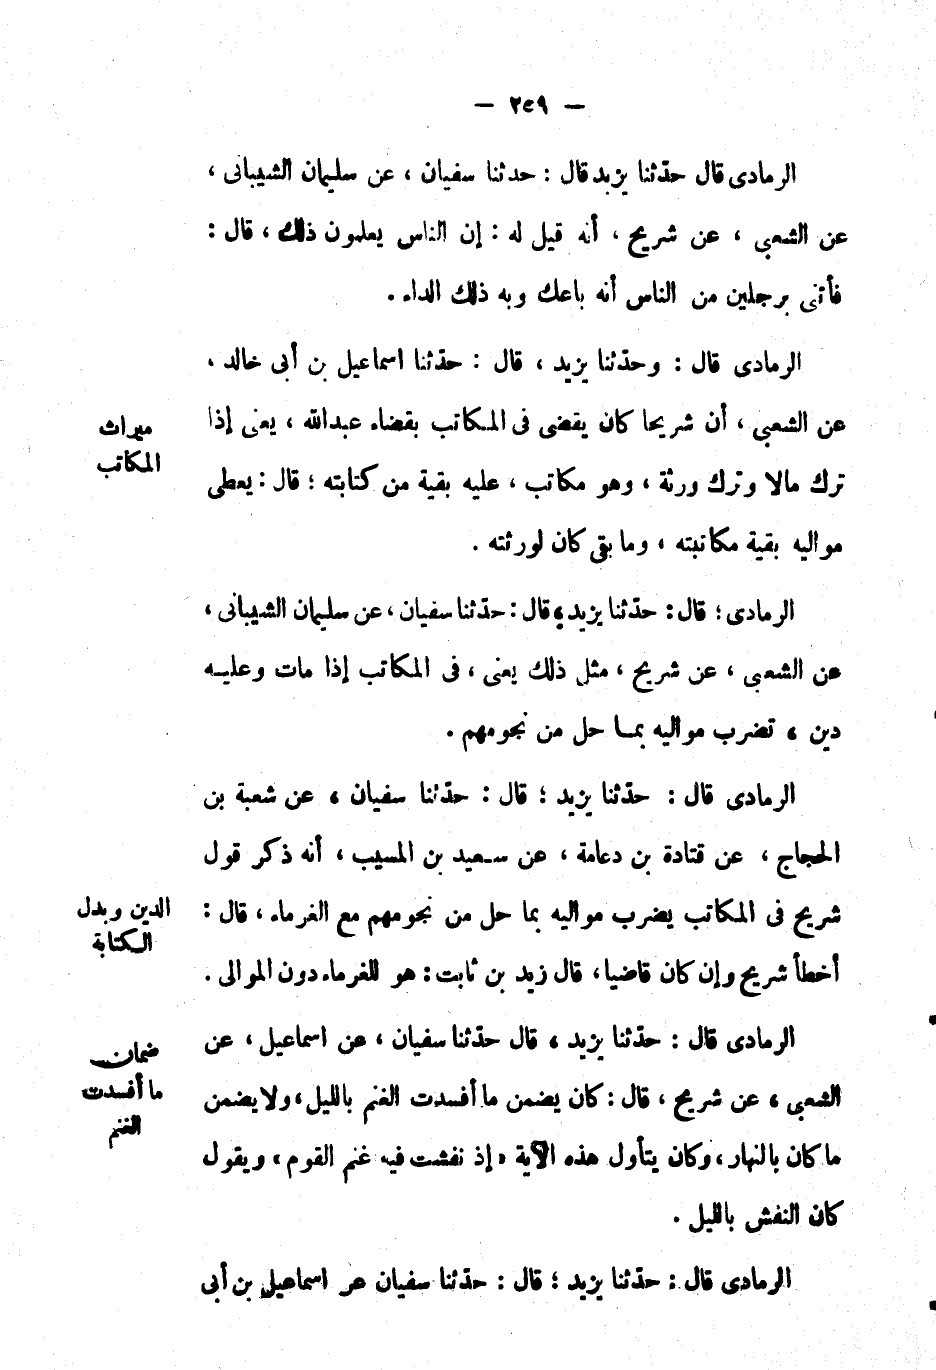 — ٢٥٩ —
الرمادى قال حدّثنا يزيد قال : حدثنا سفيان ، عن سليمان الشيبانى ،
عن الشعبى ، عن شريح ، أنه قيل له : إن الناس يعلمون ذلك ، قال :
فأتنى برجلين من الناس أنه باعك وبه ذلك الداء .
الرمادى قال : وحدّثنا يزيد ، قال : حدّثنا اسماعيل بن أبى خالد ،
عن الشعبى ، أن شريحا كان يقضى فى المكاتب بقضاء عبدالله ، يعنى إذا
ميراث
المكاتب
ترك مالا وترك ورثة ، وهو مكاتب ، عليه بقية من كتابته ؛ قال : يعطى
مواليه بقية مكاتبته ، وما بقى كان لورثته .
الرمادى ؛ قال : حدّثنا يزيد ، قال : حدّثنا سفيان ، عن سليمان الشيبانى ،
عن الشعبى ، عن شريح ، مثل ذلك يعنى ، فى المكاتب إذا مات وعليه
دين ، تضرب مواليه بما حل من نجومهم .
الرمادى قال : حدّثنا يزيد ؛ قال : حدّثنا سفيان ، عن شعبة بن
الحجاج ، عن قتادة بن دعامة ، عن سعيد بن المسيب ، أنه ذكر قول
شريح فى المكاتب يضرب مواليه بما حل من نجومهم مع الغرماء ، قال :
الدين وبدل
الكتابة
أخطأ شريح وإن كان قاضيا ، قال زيد بن ثابت : هو للغرماء دون الموالى .
الرمادى قال : حدّثنا يزيد ، قال حدّثنا سفيان ، عن اسماعيل ، عن
ضمان
ما أفسدت
الغنم
الشعبى ، عن شريح ، قال : كان يضمن ما أفسدت الغنم بالليل ، ولا يضمن
ما كان بالنهار ، وكان يتأول هذه الآية « إذ نفشت فيه غنم القوم » ويقول
كان النفش بالليل .
الرمادى قال : حدّثنا يزيد ؛ قال : حدّثنا سفيان عن اسماعيل بن أبى